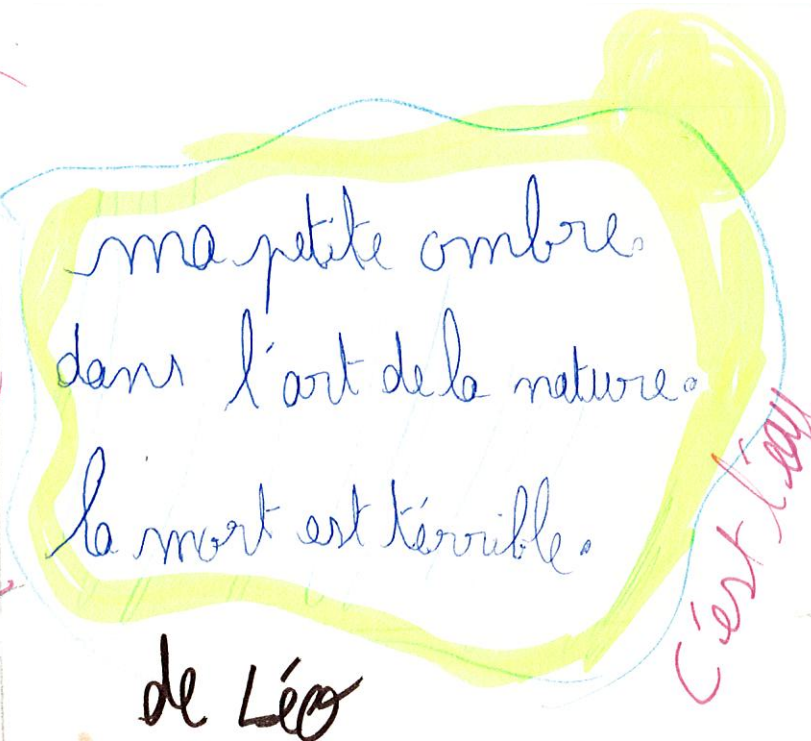 ma petite ombre.
dans l'art de la nature.
la mort est térrible.
de Léo
C'est l'eau